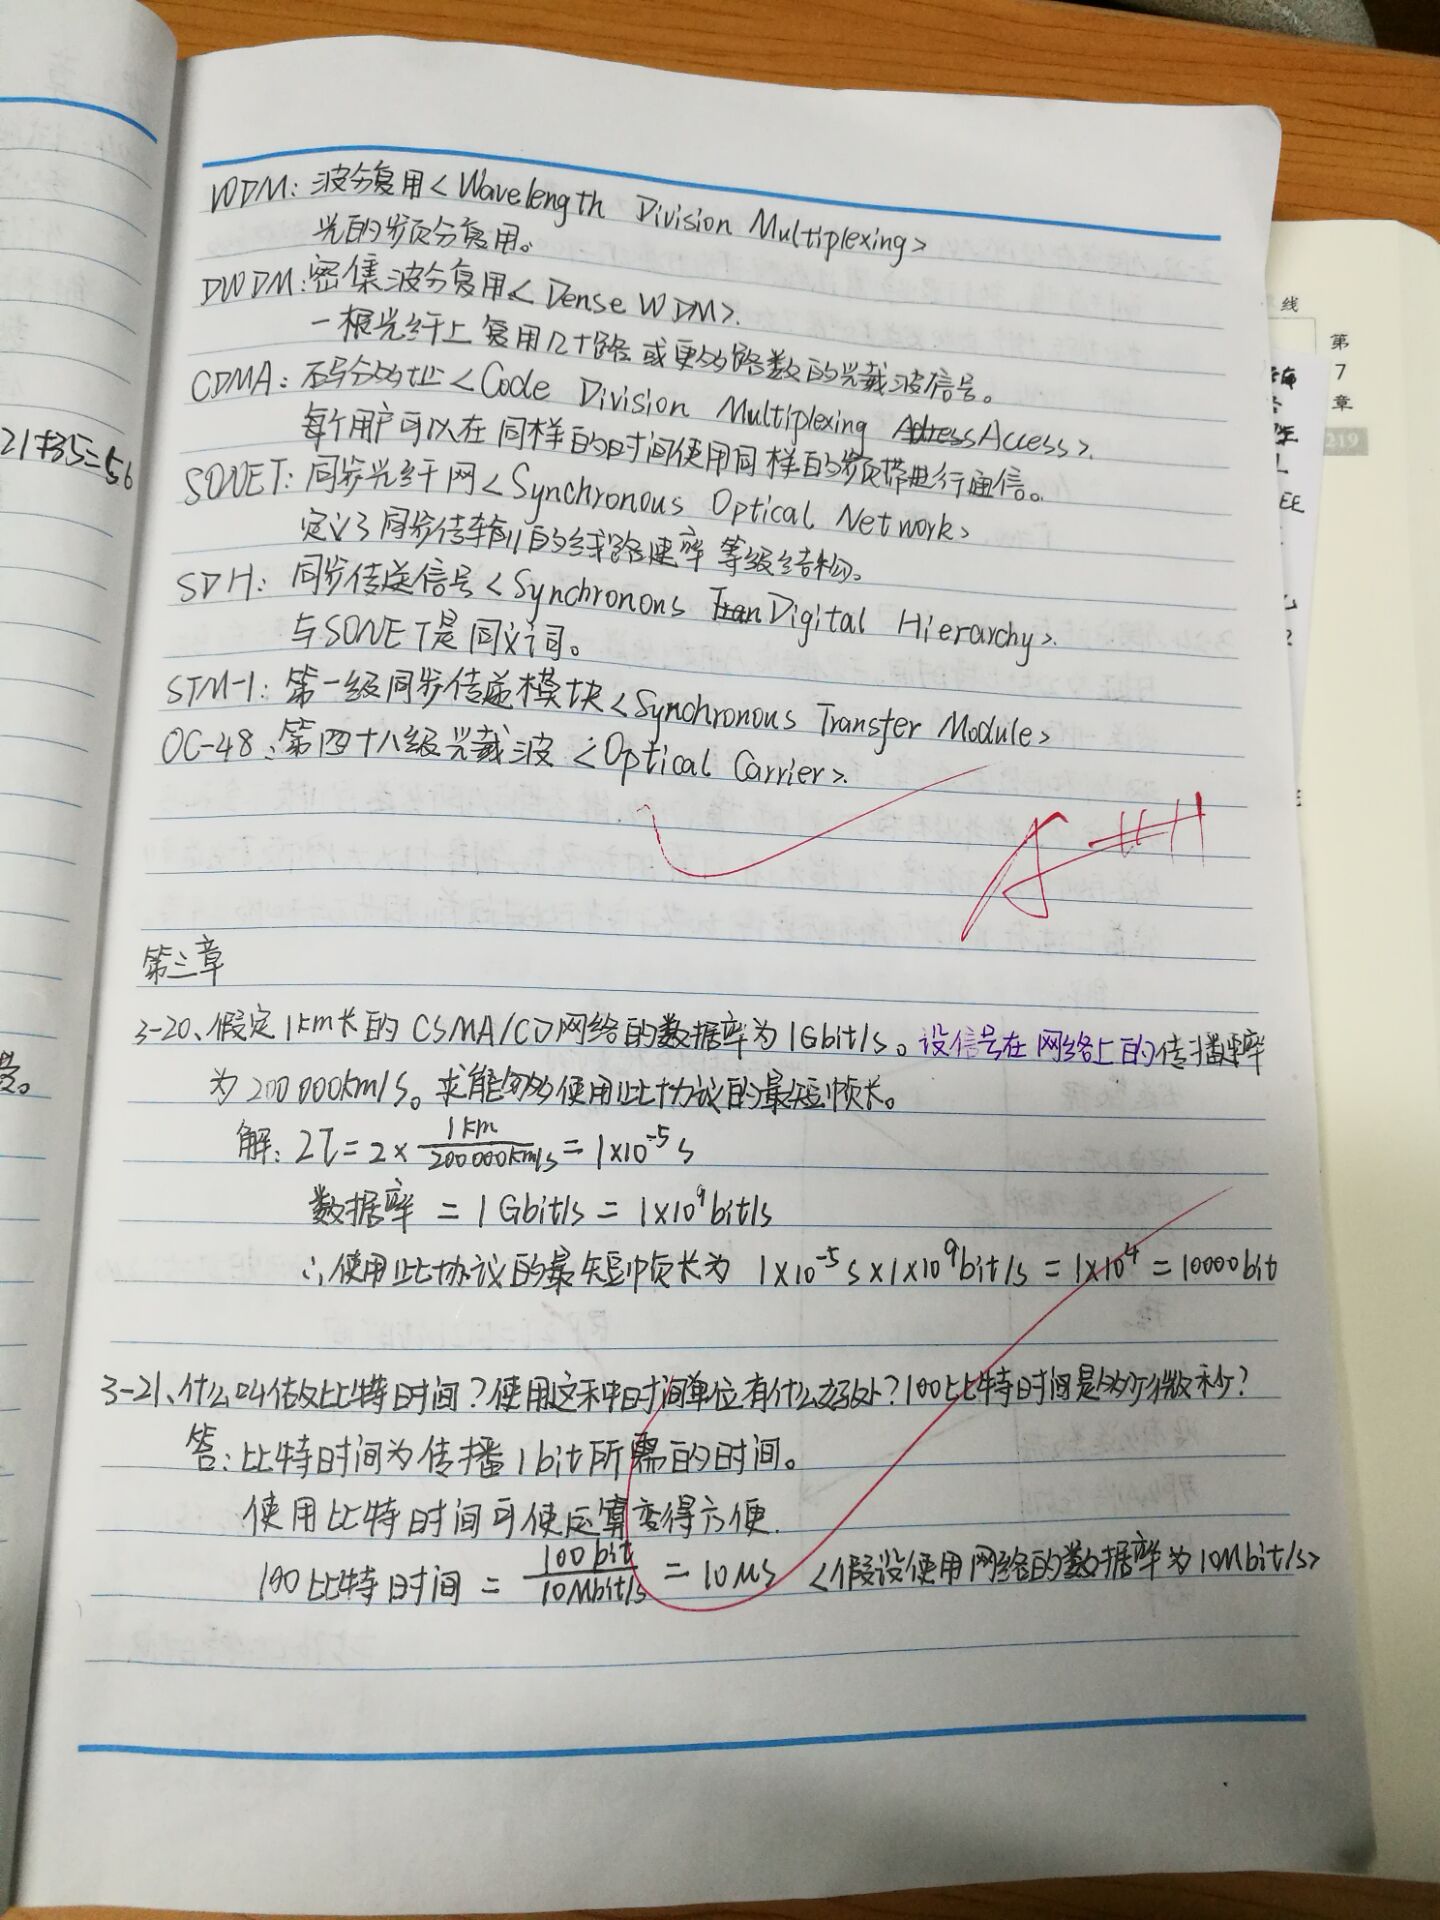 WDM: 波分复用<Wavelength Division Multiplexing>
光的频分复用。
DWDM: 密集波分复用<Dense WDM>.
一根光纤上复用几十路或更多路数的光载波信号。
CDMA: 码分多址<Code Division Multiplexing Address Access>.
每个用户可以在同样的时间使用同样的频带进行通信。
SONET: 同步光纤网<Synchronous Optical Network>
定义了同步传输的线路速率等级结构。
SDH: 同步传递信号<Synchronous Tran Digital Hierarchy>.
与SONET是同义词。
STM-1: 第一级同步传递模块<Synchronous Transfer Module>
OC-48: 第四十八级光载波<Optical Carrier>.
第三章
3-20、假定1km长的CSMA/CD网络的数据率为1Gbit/s。设信号在网络上的传播速率
为200000km/s。求能够使用此协议的最短帧长。
解: 2τ=2×1km/200000km/s=1×10⁻⁵s
数据率 = 1Gbit/s = 1×10⁹bit/s
∴使用此协议的最短帧长为 1×10⁻⁵s×1×10⁹bit/s=1×10⁴=10000bit
3-21、什么叫做比特时间?使用这种时间单位有什么好处?100比特时间是多少微秒?
答: 比特时间为传播1bit所需的时间。
使用比特时间可使运算变得方便.
100比特时间 = 100bit/10Mbit/s = 10μs <假设使用网络的数据率为10Mbit/s>
21+35=56
线
第
7
章
219
EE